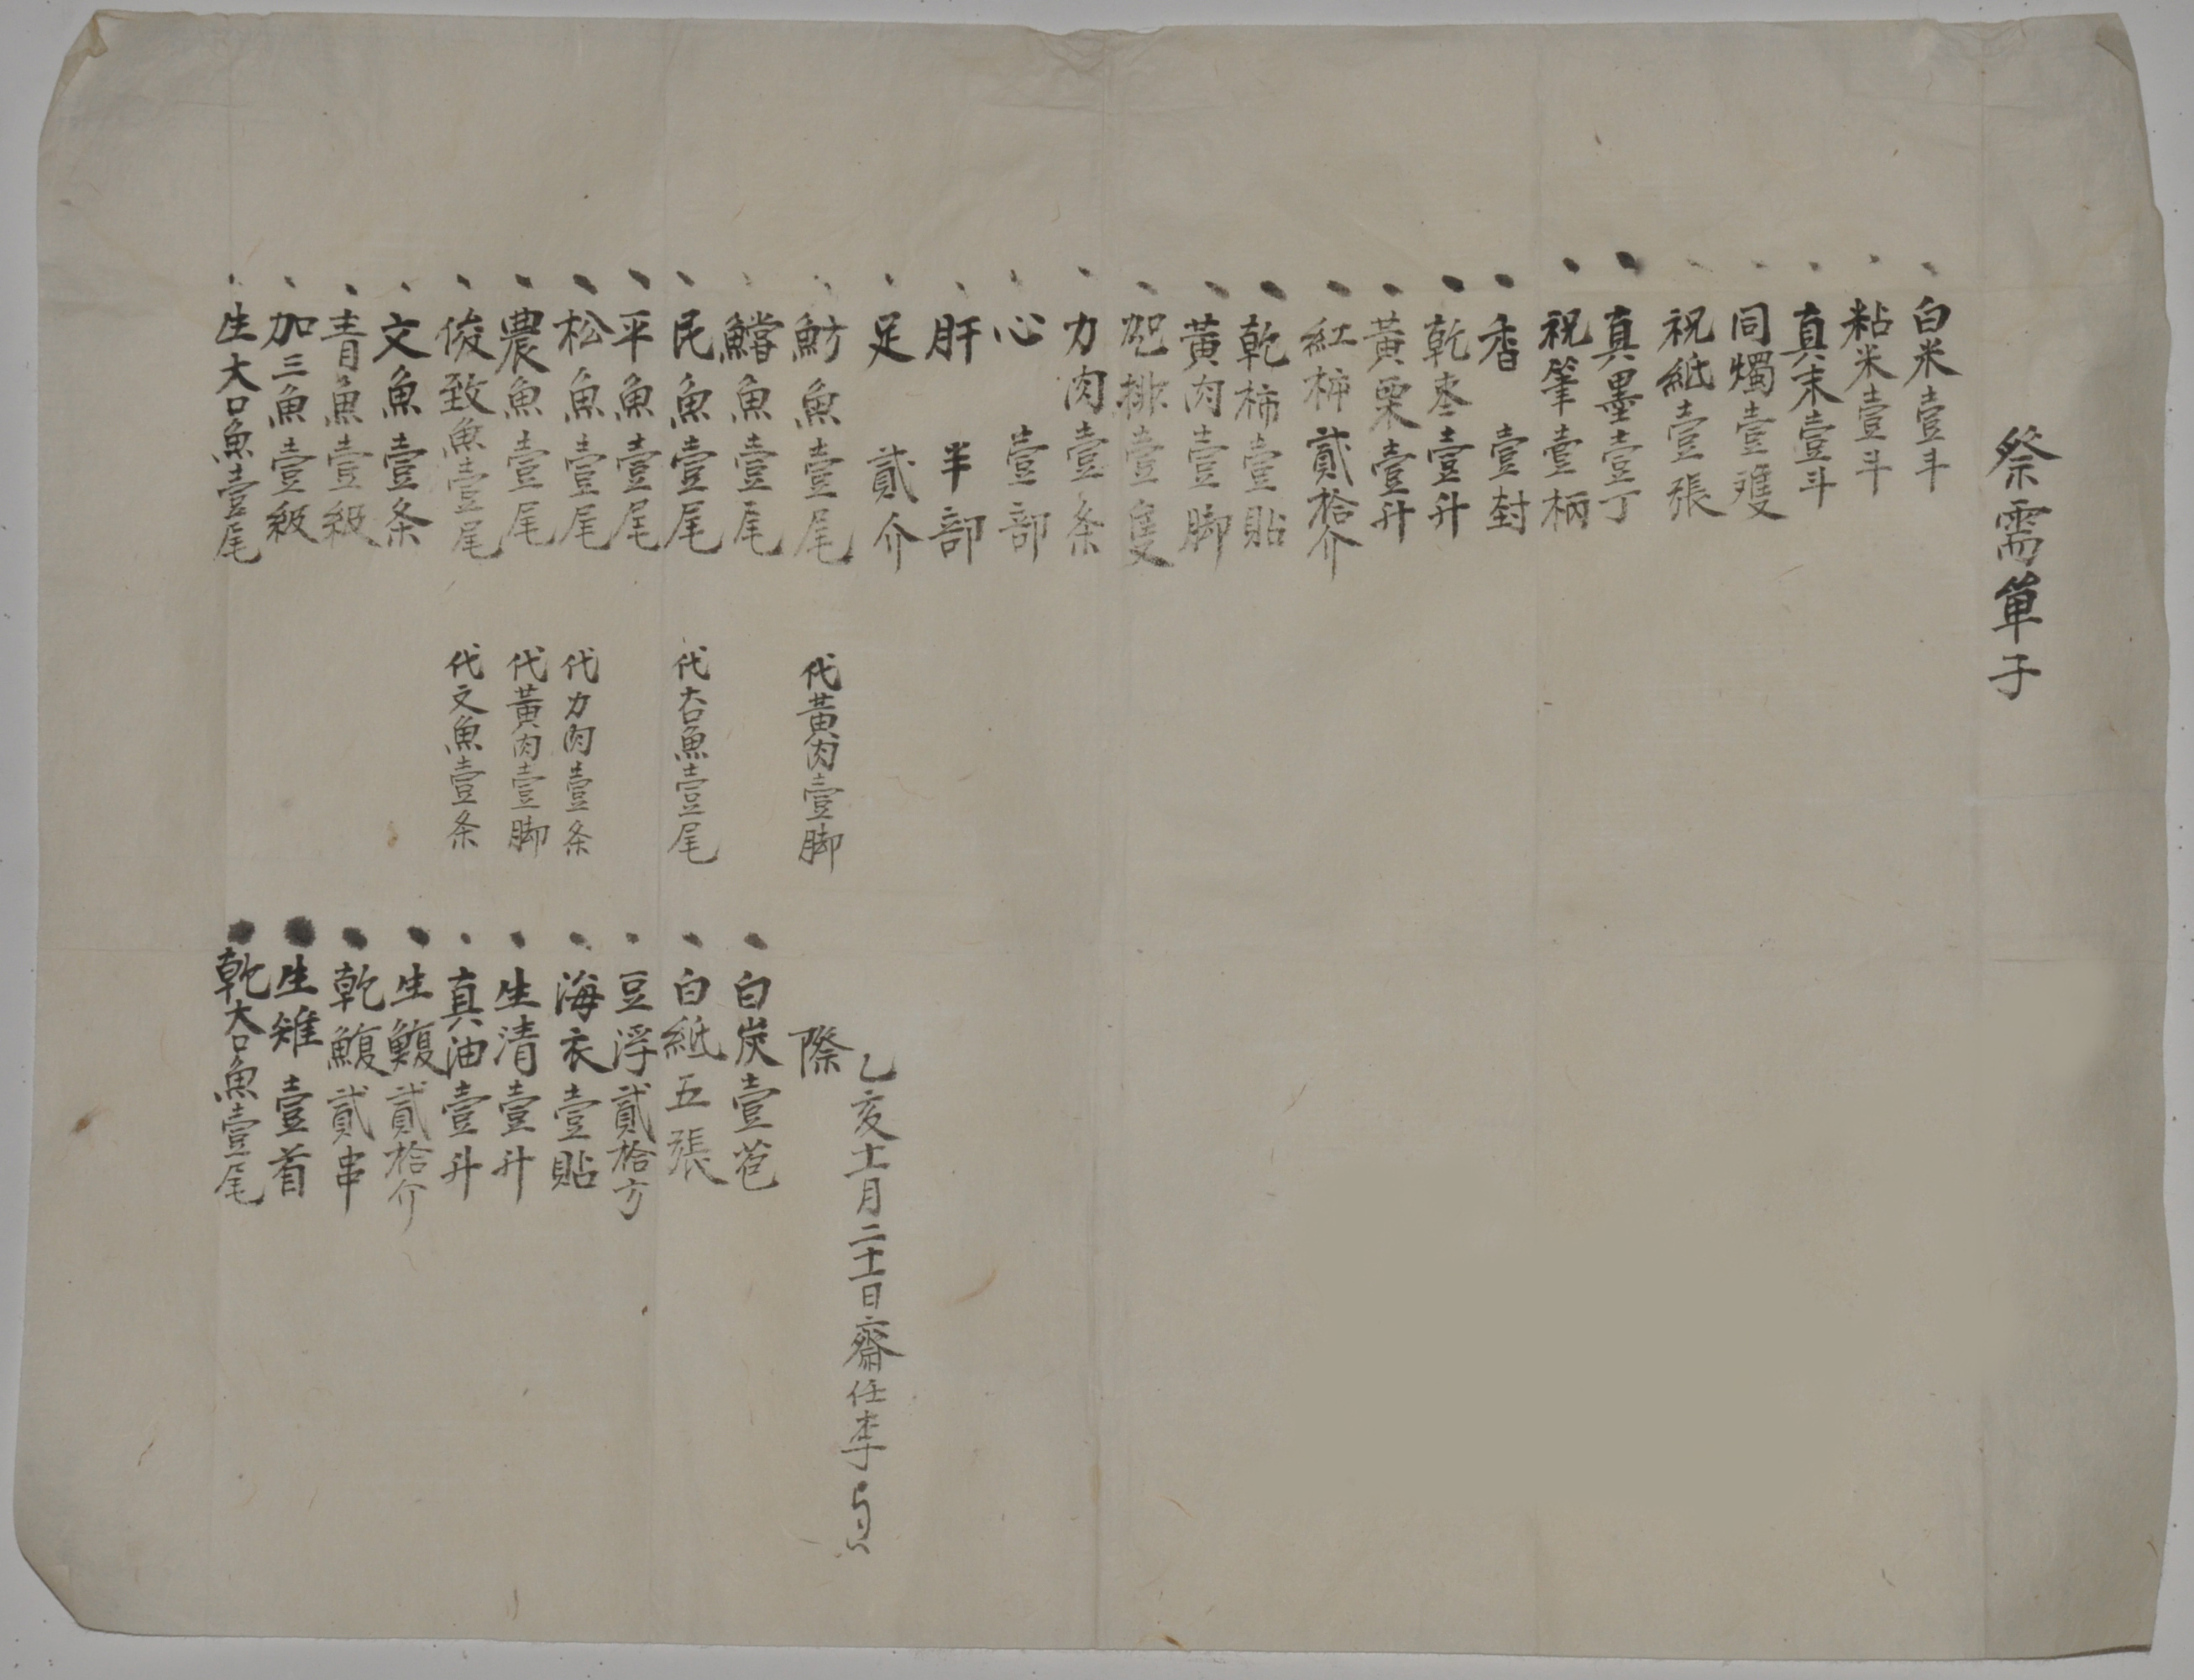 祭需單子
白米壹斗
粘米壹斗
真末壹斗
同燭壹䨇
祝紙壹張
真墨壹丁
祝筆壹柄
香 壹封
乾枣壹升
黃栗壹升
紅柿貳拾介
乾柿壹貼
黃肉壹脚
排壹隻
力肉壹条
心 壹部
肝 半部
足 貳介
魴魚壹尾 代黃肉壹脚
鱨魚壹尾
民魚壹尾 代大口魚壹尾
平魚壹尾
松魚壹尾 代力肉壹条
農魚壹尾 代黃肉壹脚
俊致魚壹尾 代文魚壹条
文魚壹条
青魚壹級
加三魚壹級
生大口魚壹尾
乾大口魚壹尾
生雉壹首
乾鰒貳串
生鰒貳拾介
真油壹升
生清壹升
海衣壹貼
豆浮貳拾方
白紙五張
白炭壹苞
際
乙亥十一月二十一日齋任李